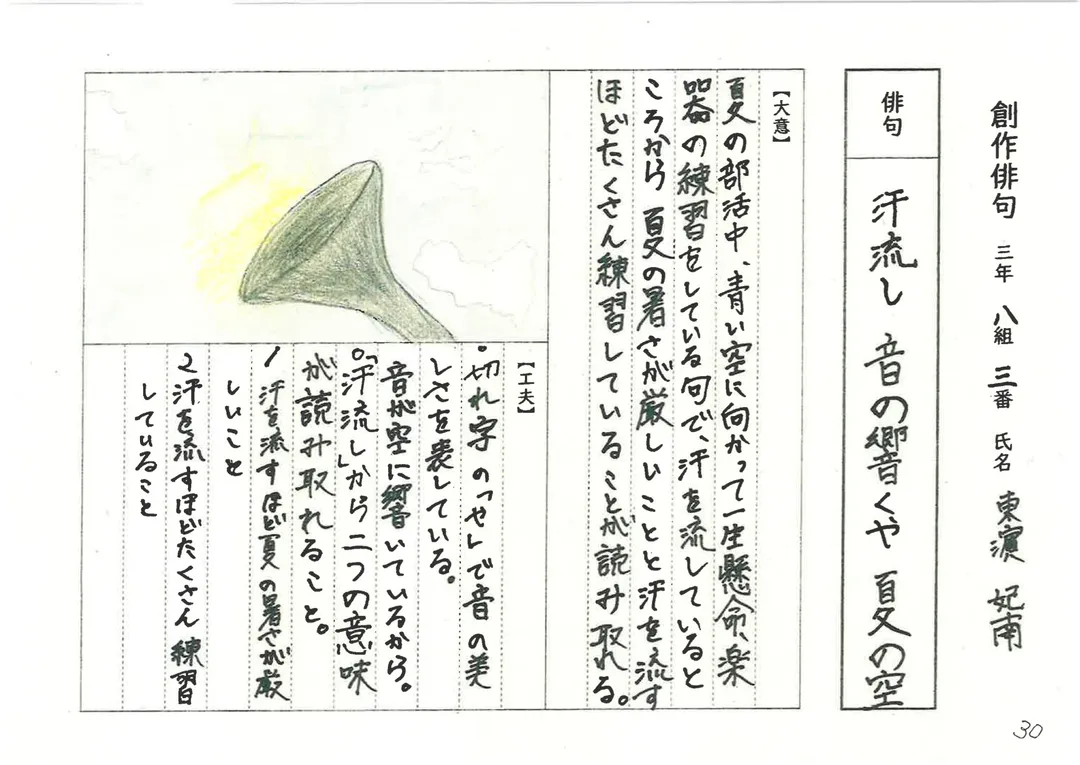 創作俳句 三年 八組 三番 氏名 東濵 妃南
俳句 汗流し 音の響くや 夏の空
【大意】
夏の部活中、青い空に向かって一生懸命、楽
器の練習をしている句で、汗を流していると
ころから夏の暑さが厳しいことと汗を流す
ほどたくさん練習していることが読み取れる。
【工夫】
・切れ字の「や」で音の美
しさを表している。
音が空に響いているから。
○「汗流し」から二つの意味
が読み取れること。
1 汗を流すほど夏の暑さが厳
しいこと
2 汗を流すほどたくさん練習
していること
30